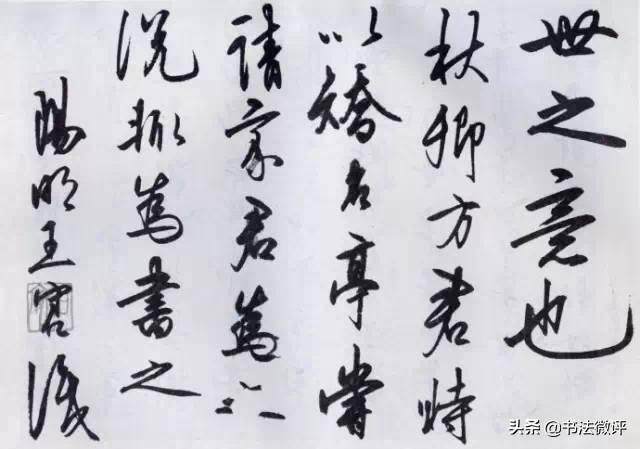 世之意也
秋卿方君時
以矯名亭嘗
請家君為
說輒為書之
陽明王識
头条 @书法微评